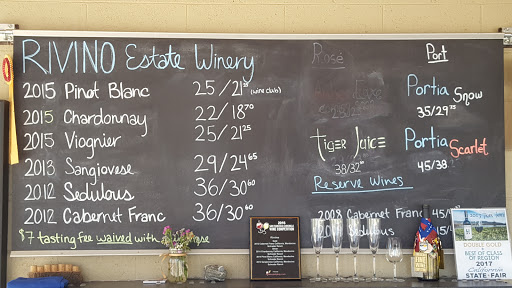 RIVINO Estate Winery
2015 Pinot Blanc 25/21 (wine club)
2015 Chardonnay 22/18⁷⁰
2015 Viognier 25/21²⁵
2013 Sangiovese 29/24⁶⁵
2012 Sedulous 36/30⁶⁰
2012 Cabernut Franc 36/30⁶⁰
$7 tasting fee waived with
Rosé
Tiger Juice
38/32
Reserve Wines
2008 Cabernet Franc 45/
Sedulous 45/
Port
Portia Snow
35/29⁷⁵
Portia Scarlet
45/38
WINE COMPETITION
DOUBLE GOLD
BEST OF CLASS
OF REGION
2017
California
STATE FAIR